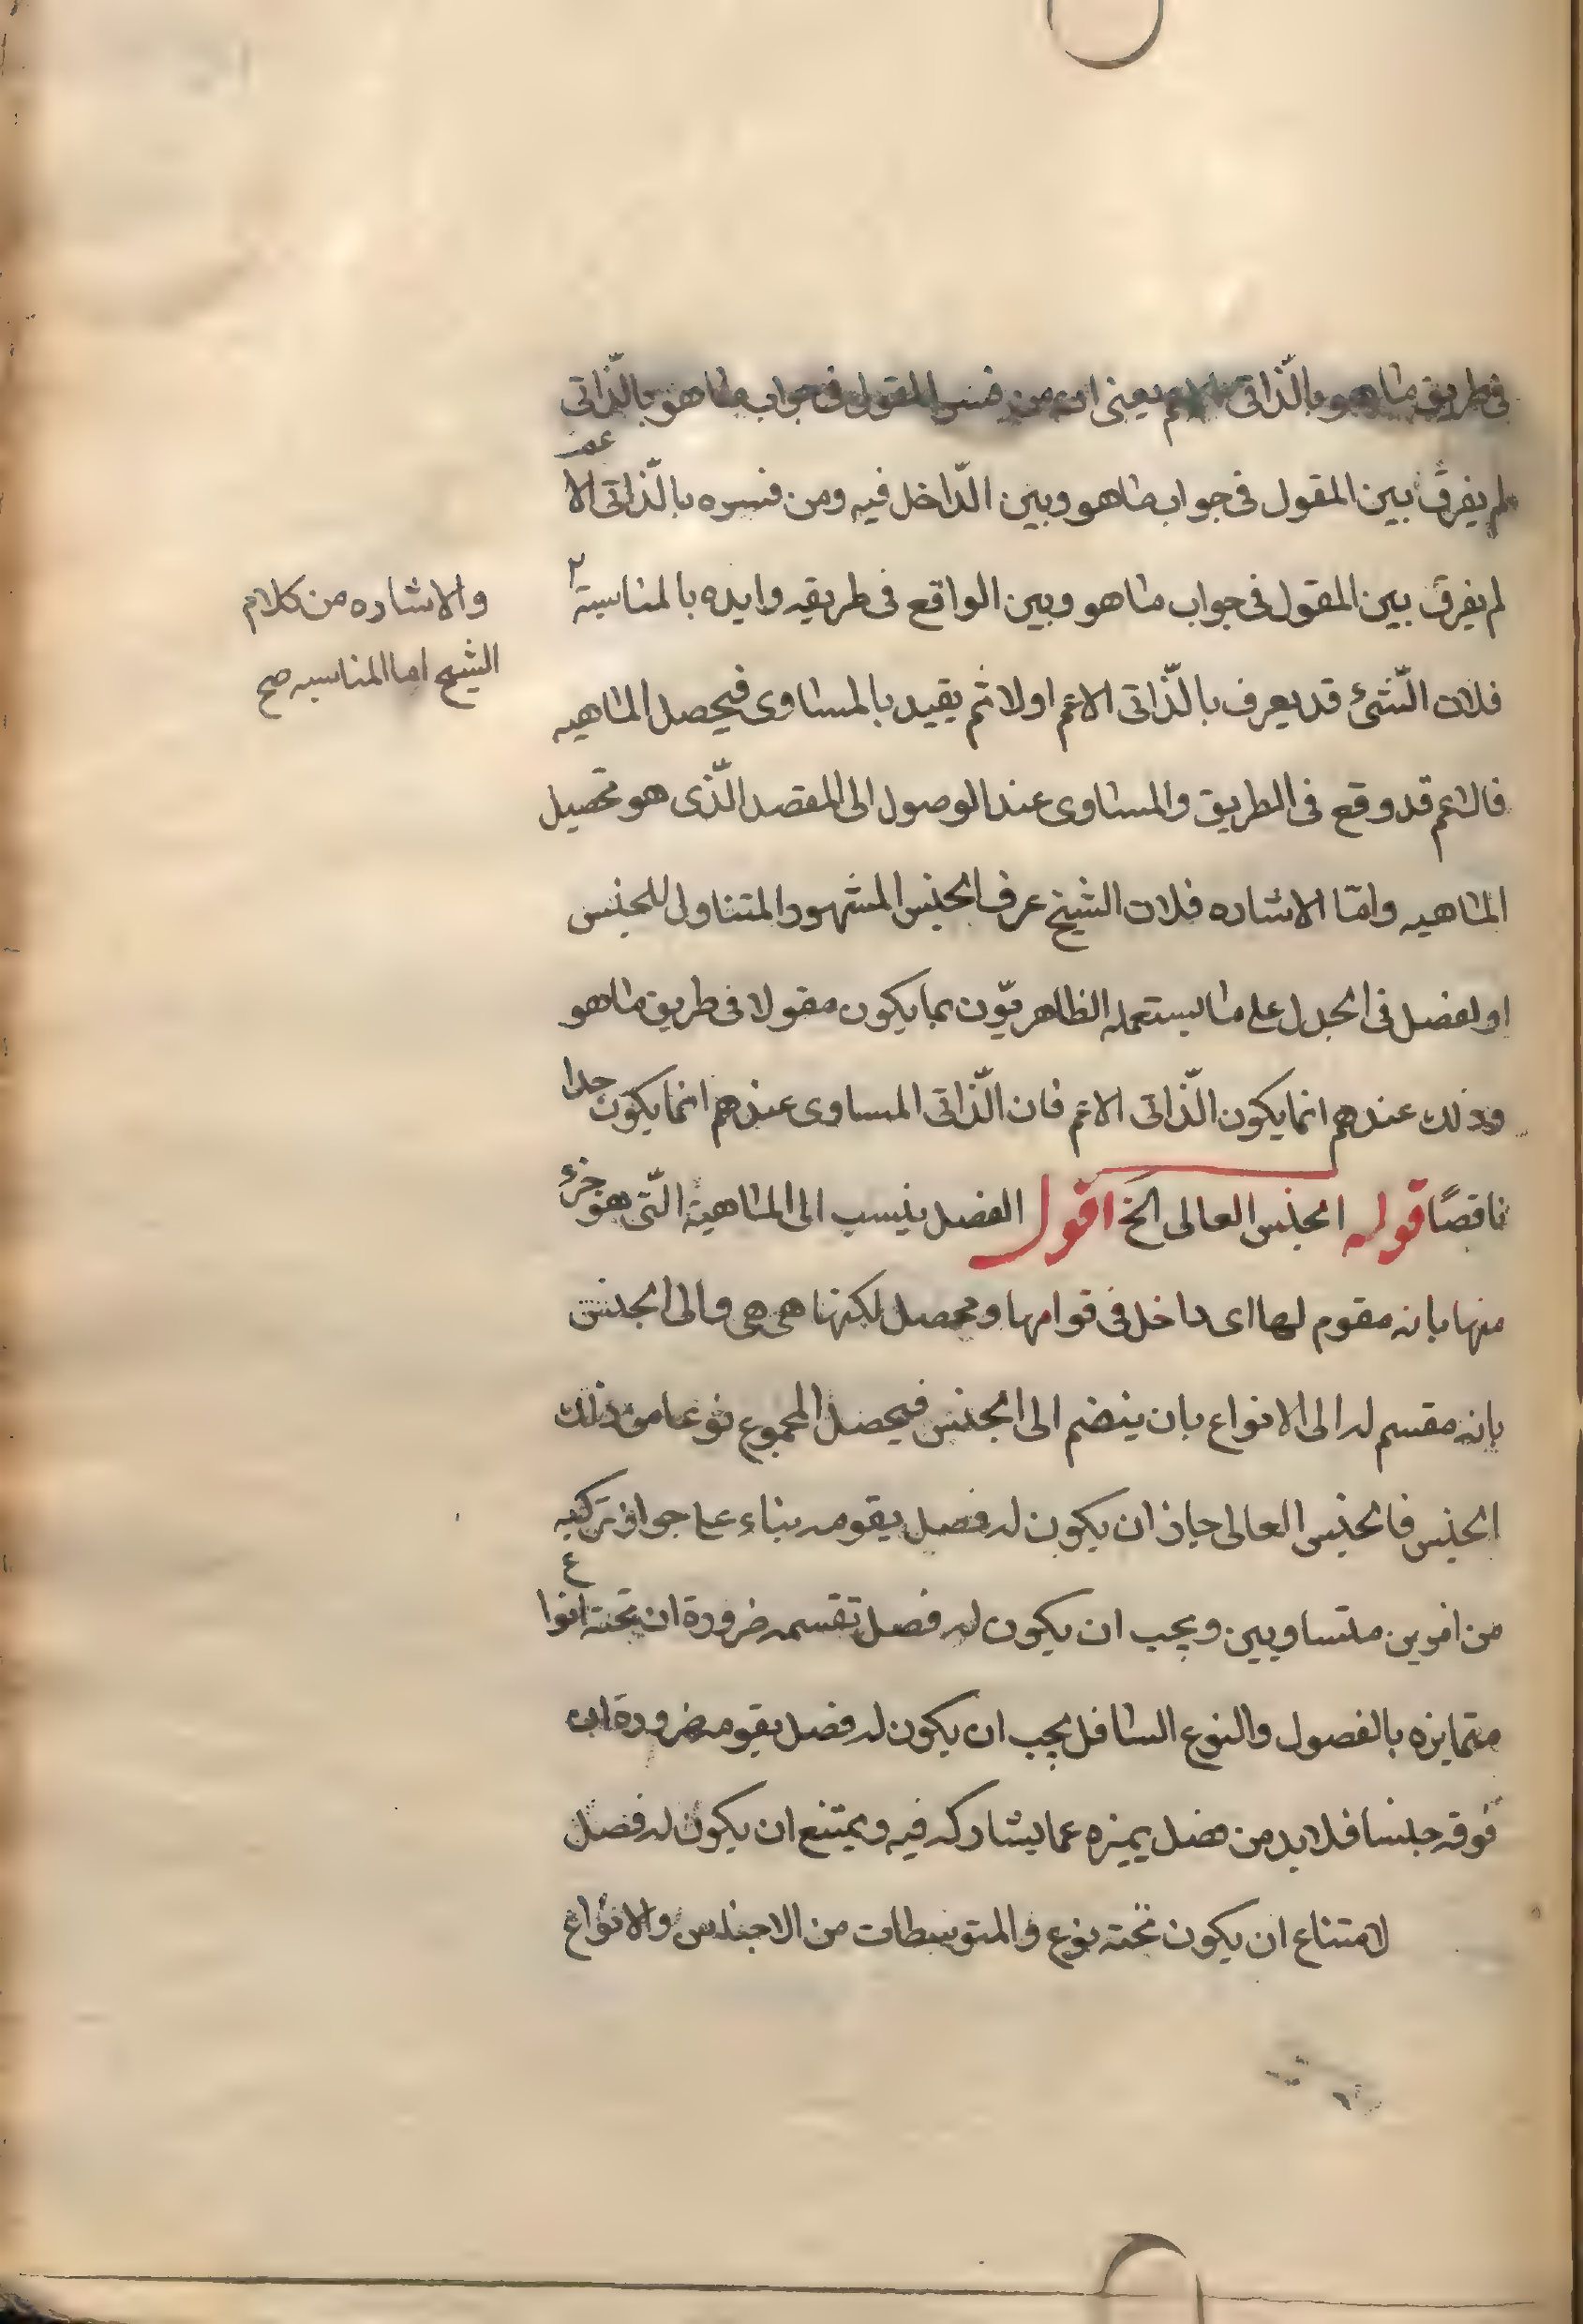 فى طريق ماهو بالذّاتى الاعم يعنى ان من فسر المقول فى جواب ماهو بالذّاتى
لم يفرق بين المقول فى جواب ماهو وبين الدّاخل فيه ومن فسره بالذّاتى الاعم
لم يفرق بين المقول فى جواب ماهو وبين الواقع فى طريقه وايده بالمناسبة
والاشاره من كلام
الشيخ اما المناسبه صح
فلان الشّئ قد يعرف بالذّاتى الاعم اولا ثم يقيد بالمساوى فيحصل الماهيه
فالاعم قد وقع فى الطريق والمساوى عند الوصول الى المقصد الّذى هو تحصيل
الماهيه وامّا الاشاره فلان الشيخ عرف الجنس المشهور المتناول للجنس
او لفصل فى الجدل على ما يستعمله الظاهريّون بما يكون مقولا فى طريق ماهو
وذلك عندهم انما يكون الذّاتى الاعم فان الذّاتى المساوى عندهم انما يكون حدا
ناقصًا قوله الجنس العالى الخ اقول الفصل ينسب الى الماهية الّتى هو جزء
منها بانه مقوم لها اى داخل فى قوامها ومحصل لكنها هى هى والى الجنس
بانه مقسم له الى الانواع بان ينضم الى الجنس فيحصل المجموع نوعا من ذلك
الجنس فالجنس العالى جاز ان يكون له فصل يقومه بناء على جواز تركبه
من امرين متساويين ويجب ان يكون له فصل تقسمه ضرورة ان تحته انواع
متمايزه بالفصول والنوع السافل يجب ان يكون له فصل يقومه ضرورة ان
فوقه جنسا فلابد من فصل يميزه عما يشاركه فيه ويمتنع ان يكون له فصل
لامتناع ان يكون تحته نوع والمتوسطات من الاجناس والانواع